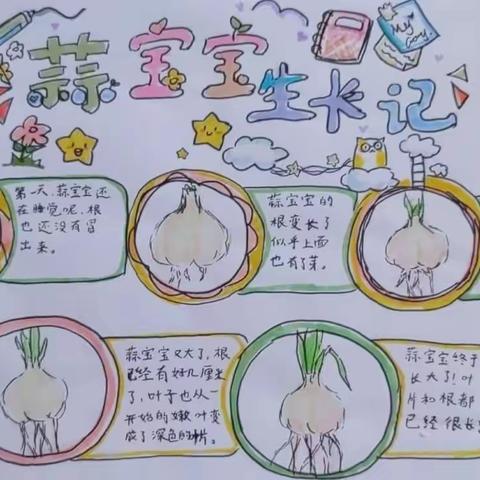 蒜宝宝生长记
My Gory
第一天,蒜宝宝还
在睡觉呢,根
也还没有冒
出来。
蒜宝宝的
根变长了
似乎上面
也有了芽。
蒜宝宝又大了,根
已经有好几厘米
了,叶子也从一
开始的嫩叶变
成了深色的叶片。
蒜宝宝终于
长大了!叶
片和根都
已经很长